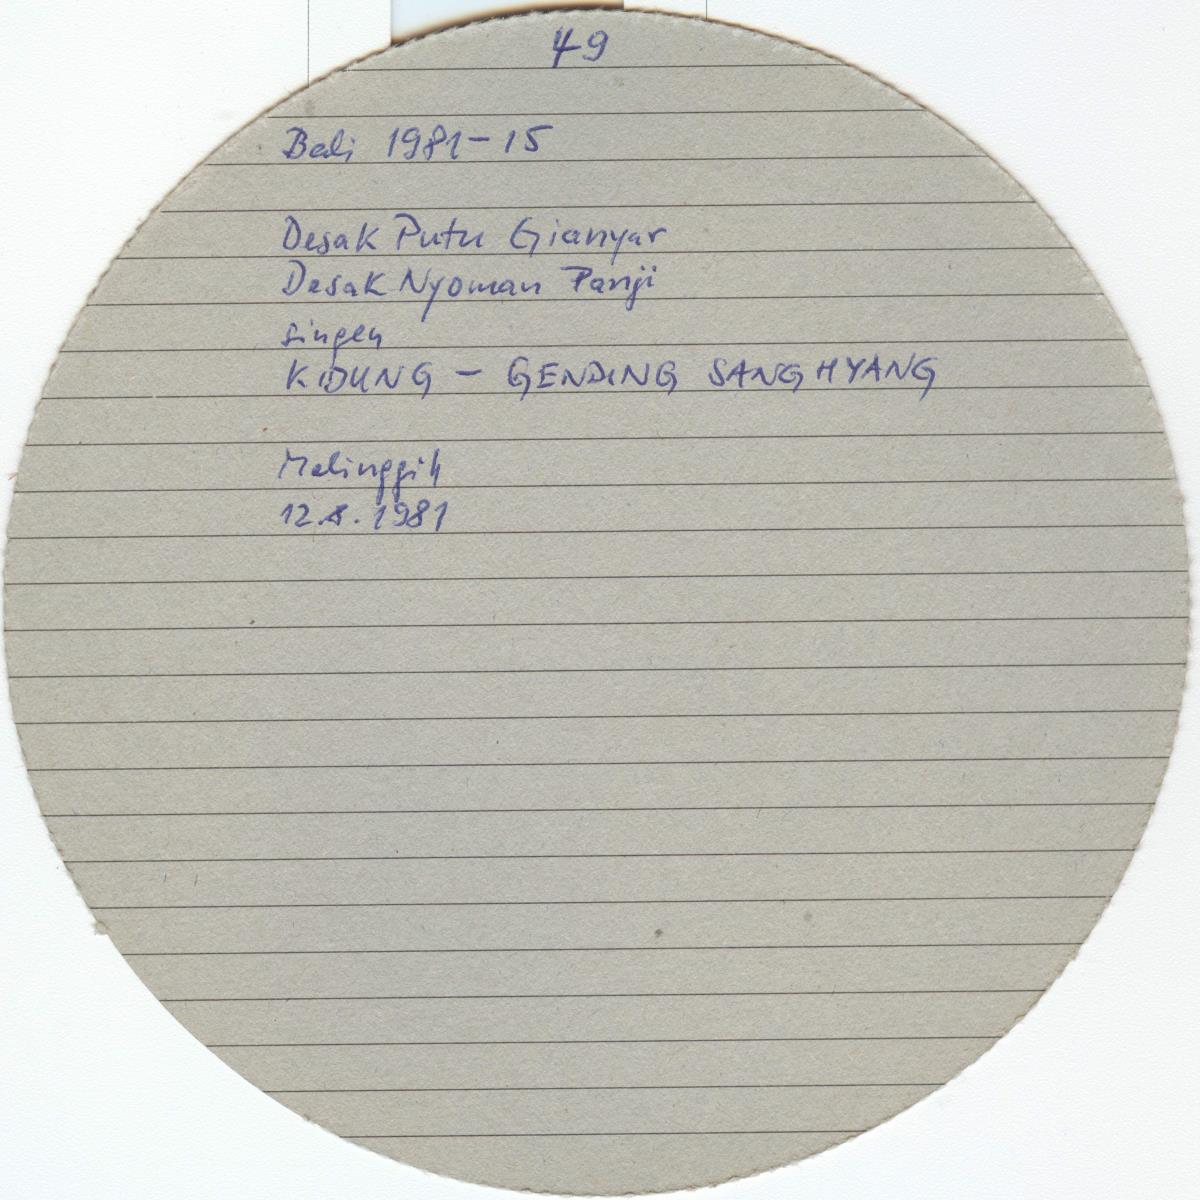 49
Bali 1981-15
Desak Putu Gianyar
Desak Nyoman Panji
singen
KIDUNG - GENDING SANG HYANG
Melinggih
12.8.1981